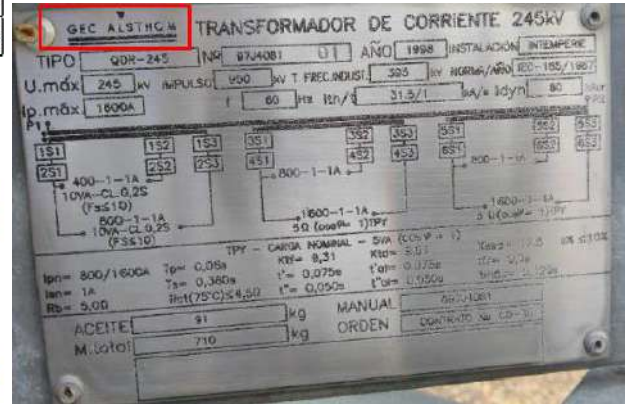 GEC ALSTHOM TRANSFORMADOR DE CORRIENTE 245kV
TIPO QDR-245 Nº 97J4081 01 AÑO 1998 INSTALACIÓN INTEMPERIE
U.máx 245 kV IMPULSO kV T FREC.INDUST. 395 kV NORMA/AÑO IEC-185/1987
Ip.máx 1600A f 60 Hz Ith/s 31.5/1 kA/s Idyn 80
P1
1S1 1S2 1S3 3S1 3S2 3S3 5S1 5S2 5S3
2S1 2S2 2S3 4S1 4S2 4S3 6S1 6S2 6S3
400-1-1A 800-1-1A 800-1-1A
10VA-CL.0,2S
(FS≤10)
800-1-1A 1600-1-1A 1600-1-1A
10VA-CL.0,2S 5Ω (cosφ= 1)TPY 5 Ω(cosφ= 1)TPY
(FS≤10)
TPY - CARGA NOMINAL - 5VA (cosφ = 1)
Ipn= 800/1600A Tp= 0,06s
Isn= 1A Ts= 0,380s t'= 0,075s
Rb= 5,0Ω Rct(75°C)≤4,5Ω t"= 0,050s
ACEITE 91 kg MANUAL
M.total 710 kg ORDEN